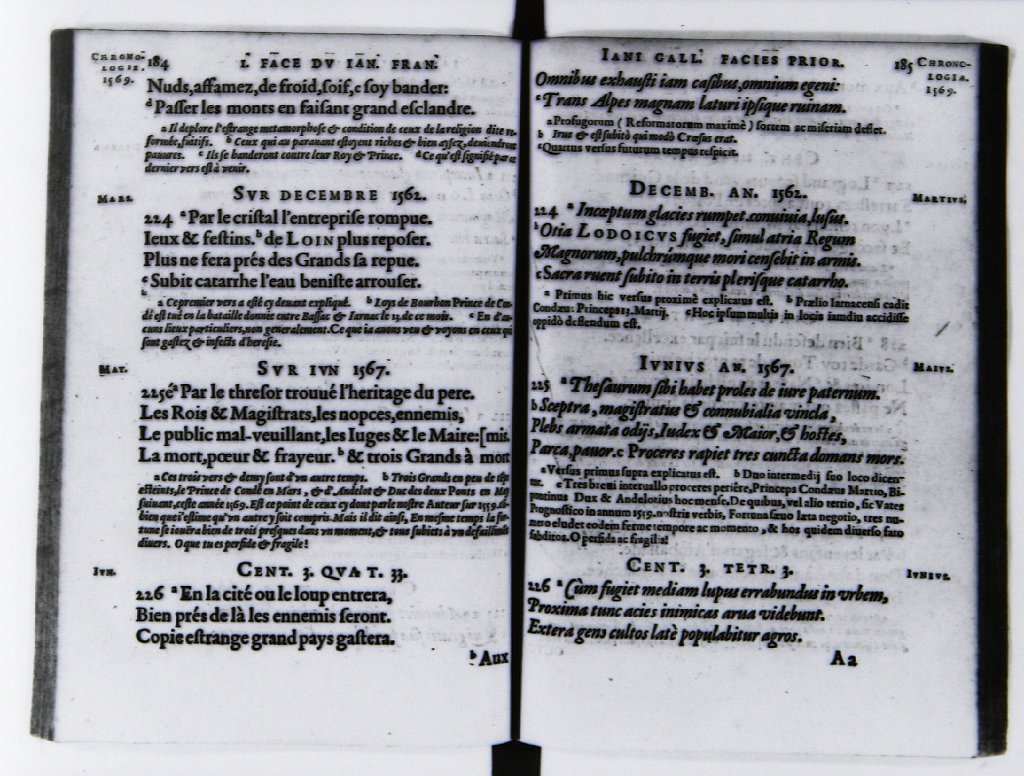 CHRONO-
LOGIE.
1569.
184 1. FACE DV IAN. FRAN.
Nuds, affamez, de froid, soif, c soy bander:
d Passer les monts en faisant grand esclandre.
a Il deplore l'estrange metamorphose & condition de ceux de la religion dite re-
formée, fuitifs. b Ceux qui au parauant estoyent riches & bien aysez, deuiendront
pauures. c Ils se banderont contre leur Roy & Prince. d Ce qu'est signifié par ce
dernier vers est à venir.
SVR DECEMBRE 1562.
MARS.
224 a Par le cristal l'entreprise rompue.
Ieux & festins. b de LOIN plus reposer.
Plus ne fera prés des Grands sa repue.
c Subit catarrhe l'eau beniste arrouser.
a Ce premier vers a esté cy deuant expliqué. b Loys de Bourbon Prince de Con-
dé est tué en la bataille donnee entre Bassac & Iarnac le 13. de ce mois. c En d'au-
cuns lieux particuliers, non generalement. Ce que ia auons veu & voyons en ceux qui
sont gastez & infects d'heresie.
SVR IVN 1567.
MAY.
225 a Par le thresor trouué l'heritage du pere.
Les Rois & Magistrats, les nopces, ennemis,
Le public mal-veuillant, les Iuges & le Maire: [mis.
La mort, pœur & frayeur. b & trois Grands à mort
a Ces trois vers & demy sont d'vn autre temps. b Trois Grands en peu de temps
esteints, le Prince de Condé en Mars, & d'Andelot & Duc des deux Ponts en May
suiuant, ceste année 1569. Est ce point de ceux cy dont parle nostre Auteur sur 1559.
bien que i'estime qu'vn autre y soit compris. Mais il dit ainsi, En mesme temps la fo-
tune se iouëra bien de trois presques dans vn moment, & tous subiects à vn desaillon
diuers. O que tu es perfide & fragile!
CENT. 3. QVAT. 33.
IVN.
226 a En la cité ou le loup entrera,
Bien prés de là les ennemis seront.
Copie estrange grand pays gastera.
b Aux
IANI GALL. FACIES PRIOR. 185
CHRONO-
LOGIA.
1569.
Omnibus exhausti iam casibus, omnium egeni:
c Trans Alpes magnam laturi ipsique ruinam.
a Profugorum (Reformatorum maximè) sortem ac miseriam deflet.
b Irus & est subitò qui modò Crœsus erat.
c Quartus versus futurum tempus respicit.
DECEMB. AN. 1562.
MARTIVS.
224 a Inceptum glacies rumpet. conuiuia, lusus.
b Otia LODOICVS fugiet, simul atria Regum
Magnorum, pulchrúmque mori censebit in armis.
c Sacra ruent subito in terris plerisque catarrho.
a Primus hic versus proximè explicatus est. b Prælio Iarnacensi cadit
Condæus Princeps 13. Martij. c Hoc ipsum multis in locis iamdiu accidisse
oppidò deflendum est.
IVNIVS AN. 1567.
MAIVS.
225 a Thesaurum sibi habet proles de iure paternum.
b Sceptra, magistratus & connubialia vincla,
Plebs armata odijs, Iudex & Maior, & hostes,
Parca, pauor. c Proceres rapiet tres cuncta domans mors.
a Versus primus supra explicatus est. b Duo intermedij suo loco dicen-
tur. c Tres breui interuallo proceres periêre, Princeps Condæus Martio, Bi-
pontinus Dux & Andelotius hoc mense, De quibus, vel alio tertio, sic Vates
Prognostico in annum 1559. nostris verbis, Fortuna sæuo læta negotio, tres nu-
mero eludet eodem ferme tempore ac momento, & hos quidem diuerso fato
subditos. O perfida ac fragilis!
CENT. 3. TETR. 3.
IVNIVS.
226 a Cùm fugiet mediam lupus errabundus in vrbem,
Proxima tunc acies inimicas arua videbunt.
Extera gens cultos latè populabitur agros.
A a